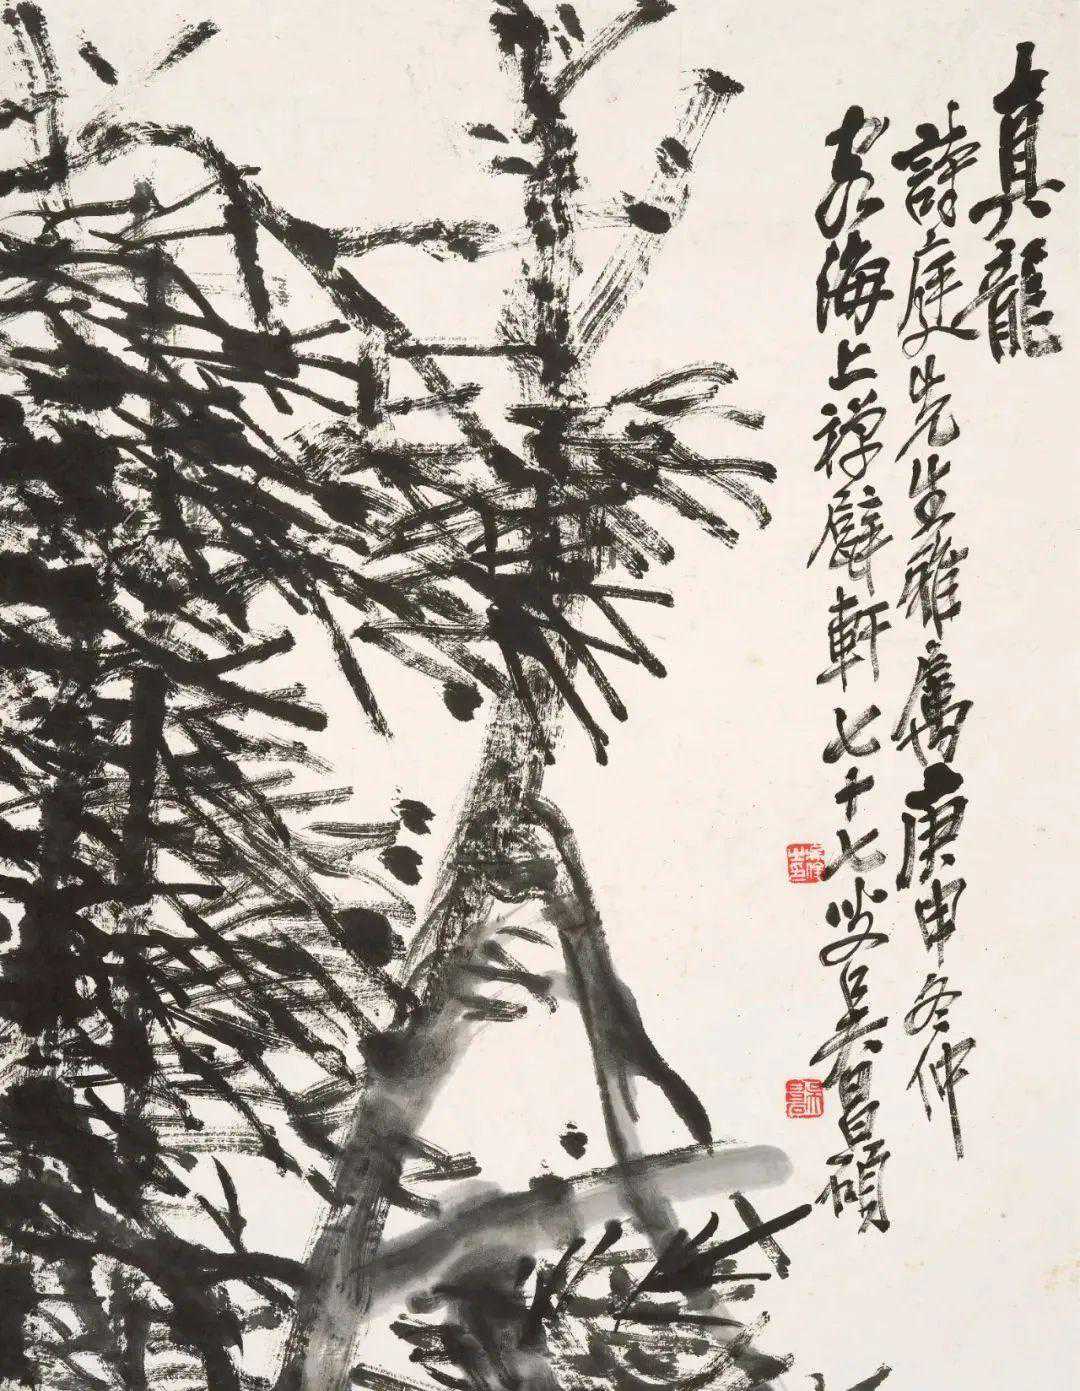 真龍
詩庭先生雅屬庚申冬仲
客海上禪甓軒七十七叟吳昌碩